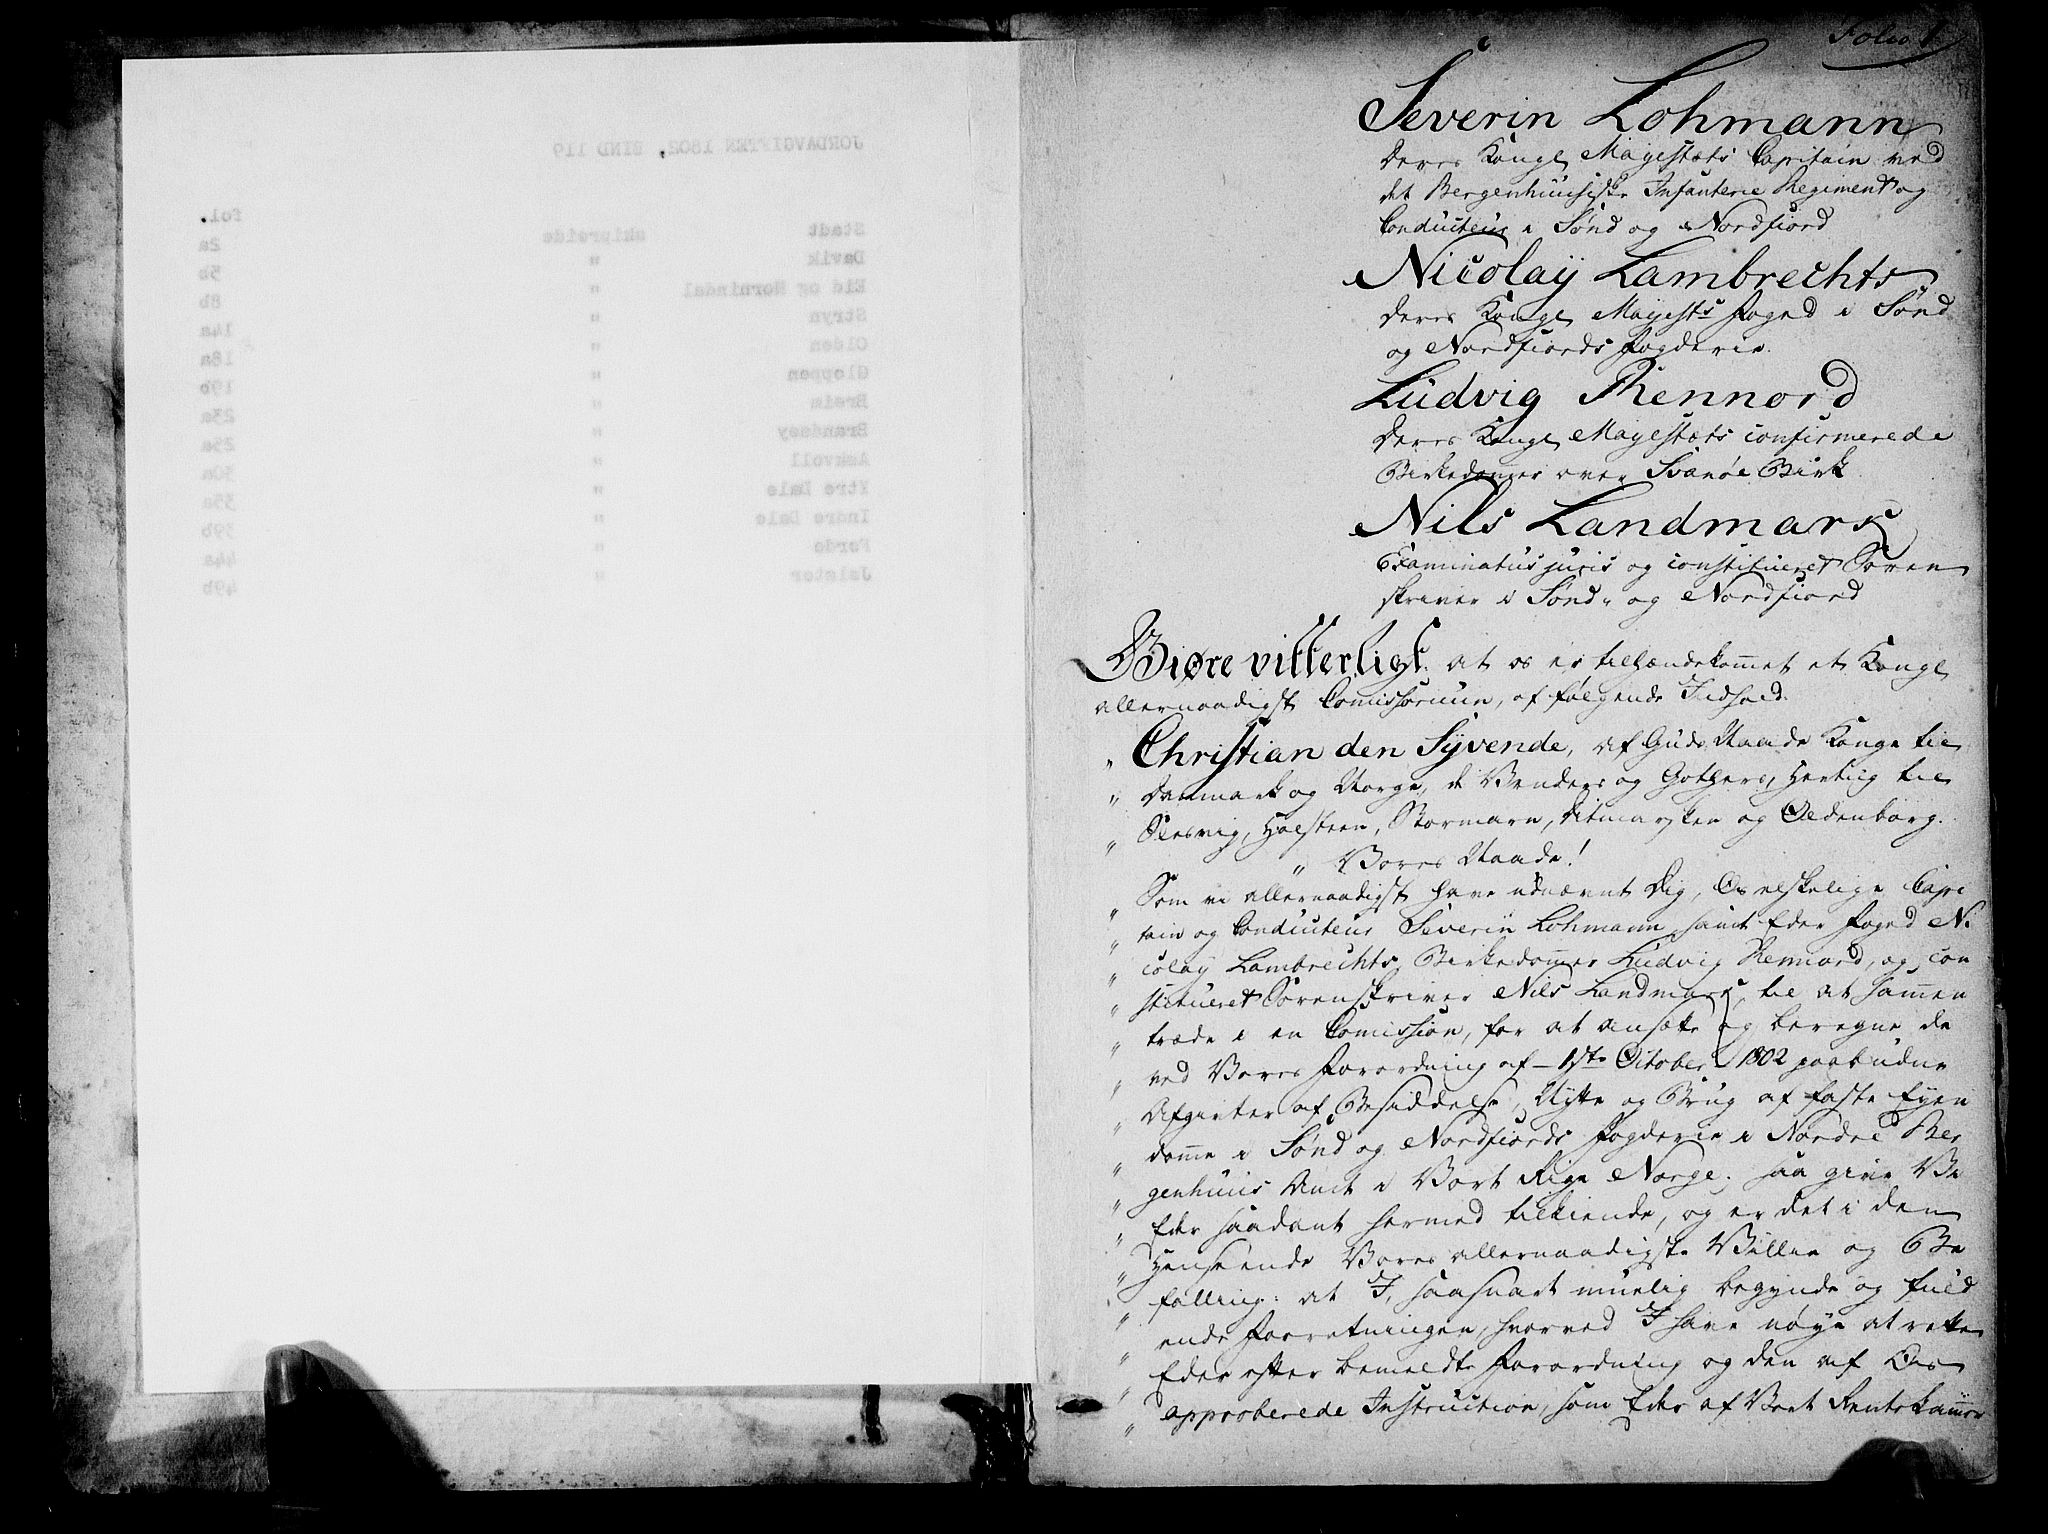 JORDAVGIFTEN 1802, BIND 119
fol.
Stadt skipreide 2a
Davik " 5b
Eid og Hornindal " 8b
Stryn " 14a
Olden " 18a
Gloppen " 19b
Breim " 23a
Brandsøy " 25a
Askvoll " 30a
Ytre Dale " 35a
Indre Dale " 39b
Førde " 44a
Jølster " 49b
Folio 1
Severin Lohmann
Deres Kongl Mayestæts Capitain ved
det Bergenhuusiske Infanterie Regiment og
Conducteur i Sønd og Nordfiord
Nicolaÿ Lambrechts
Deres Kongl Mayests Foged i Sønd
og Nordfiords Fogderie.
Ludvig Rennord
Deres Kongl Mayestæts confirmerede
Birkedommer over Svanøe Birk
Nils Landmark
Examinatus juris og constitueret Soren
skriver i Sønd- og Nordfiord
Giøre vitterligt. at os er tilhændekommet et Kongl
allernaadigst Comissorium, af følgende Indhold.
" Christian den Syvende, af Guds Naade Konge til
" Danmark og Norge, de Venders og Gothers, Hertug til
" Slesvig, Holsteen, Stormarn, Ditmarsken og Oldenborg.
" Vores Naade!
" Som vi allernaadigst have udnævnt Dig, Os elskelige Capi
" tain og Conducteur Severin Lohmann, samt Eder Foged Ni
" colaÿ Lambrechts, Birkedommer Ludvig Rennord, og con
" stitueret Sorenskriver Nils Landmark, til at sammen
" træde i en Comission, for at ansætte og beregne de
" ved Vores Forordning af 1ste October 1802 paabudne
" Afgivter af Besiddelse, Nytte og Brug af faste Eyen
" domme i Sønd og Nordfiords Fogderie i Nordre Ber
" genhuus Amt i Vort Rige Norge; saa give Vi
" Eder saadant hermed tilkiende, og er det i den
" Henseende Vores allernaadigste Villie og Be
" falling: at I, saasnart muelig begynde og fuld
" ende Forretningen, hvorved I have nøye at rette
" Eder efter bemeldte Forordning og den af Os
" approberede Instruction, som Eder af Vort Rentekammer